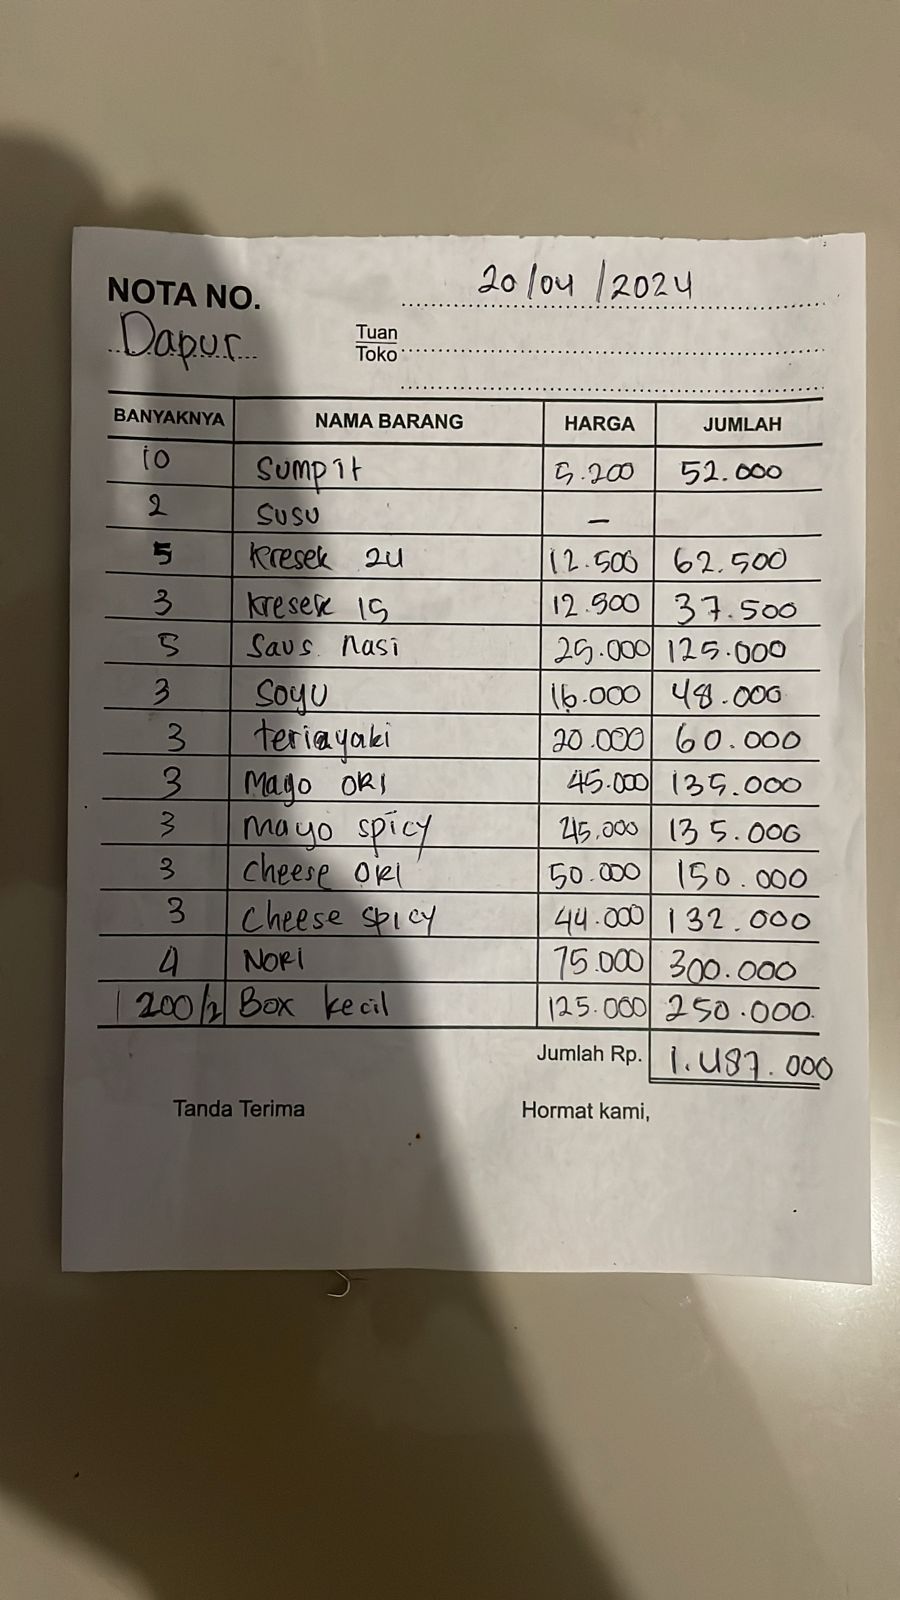 20/04/2024
NOTA NO.
Dapur
Tuan
Toko
BANYAKNYA NAMA BARANG HARGA JUMLAH
10 Sumpit 5.200 52.000
2 SUSU –
5 Kresek 24 12.500 62.500
3 Kresek 15 12.500 37.500
5 Saus Nasi 25.000 125.000
3 SOYU 16.000 48.000
3 teriayaki 20.000 60.000
3 Mayo ORI 45.000 135.000
3 Mayo spicy 45.000 135.000
3 Cheese ORI 50.000 150.000
3 Cheese spicy 44.000 132.000
4 NORI 75.000 300.000
200/2 Box kecil 125.000 250.000
Jumlah Rp. 1.487.000
Tanda Terima Hormat kami,